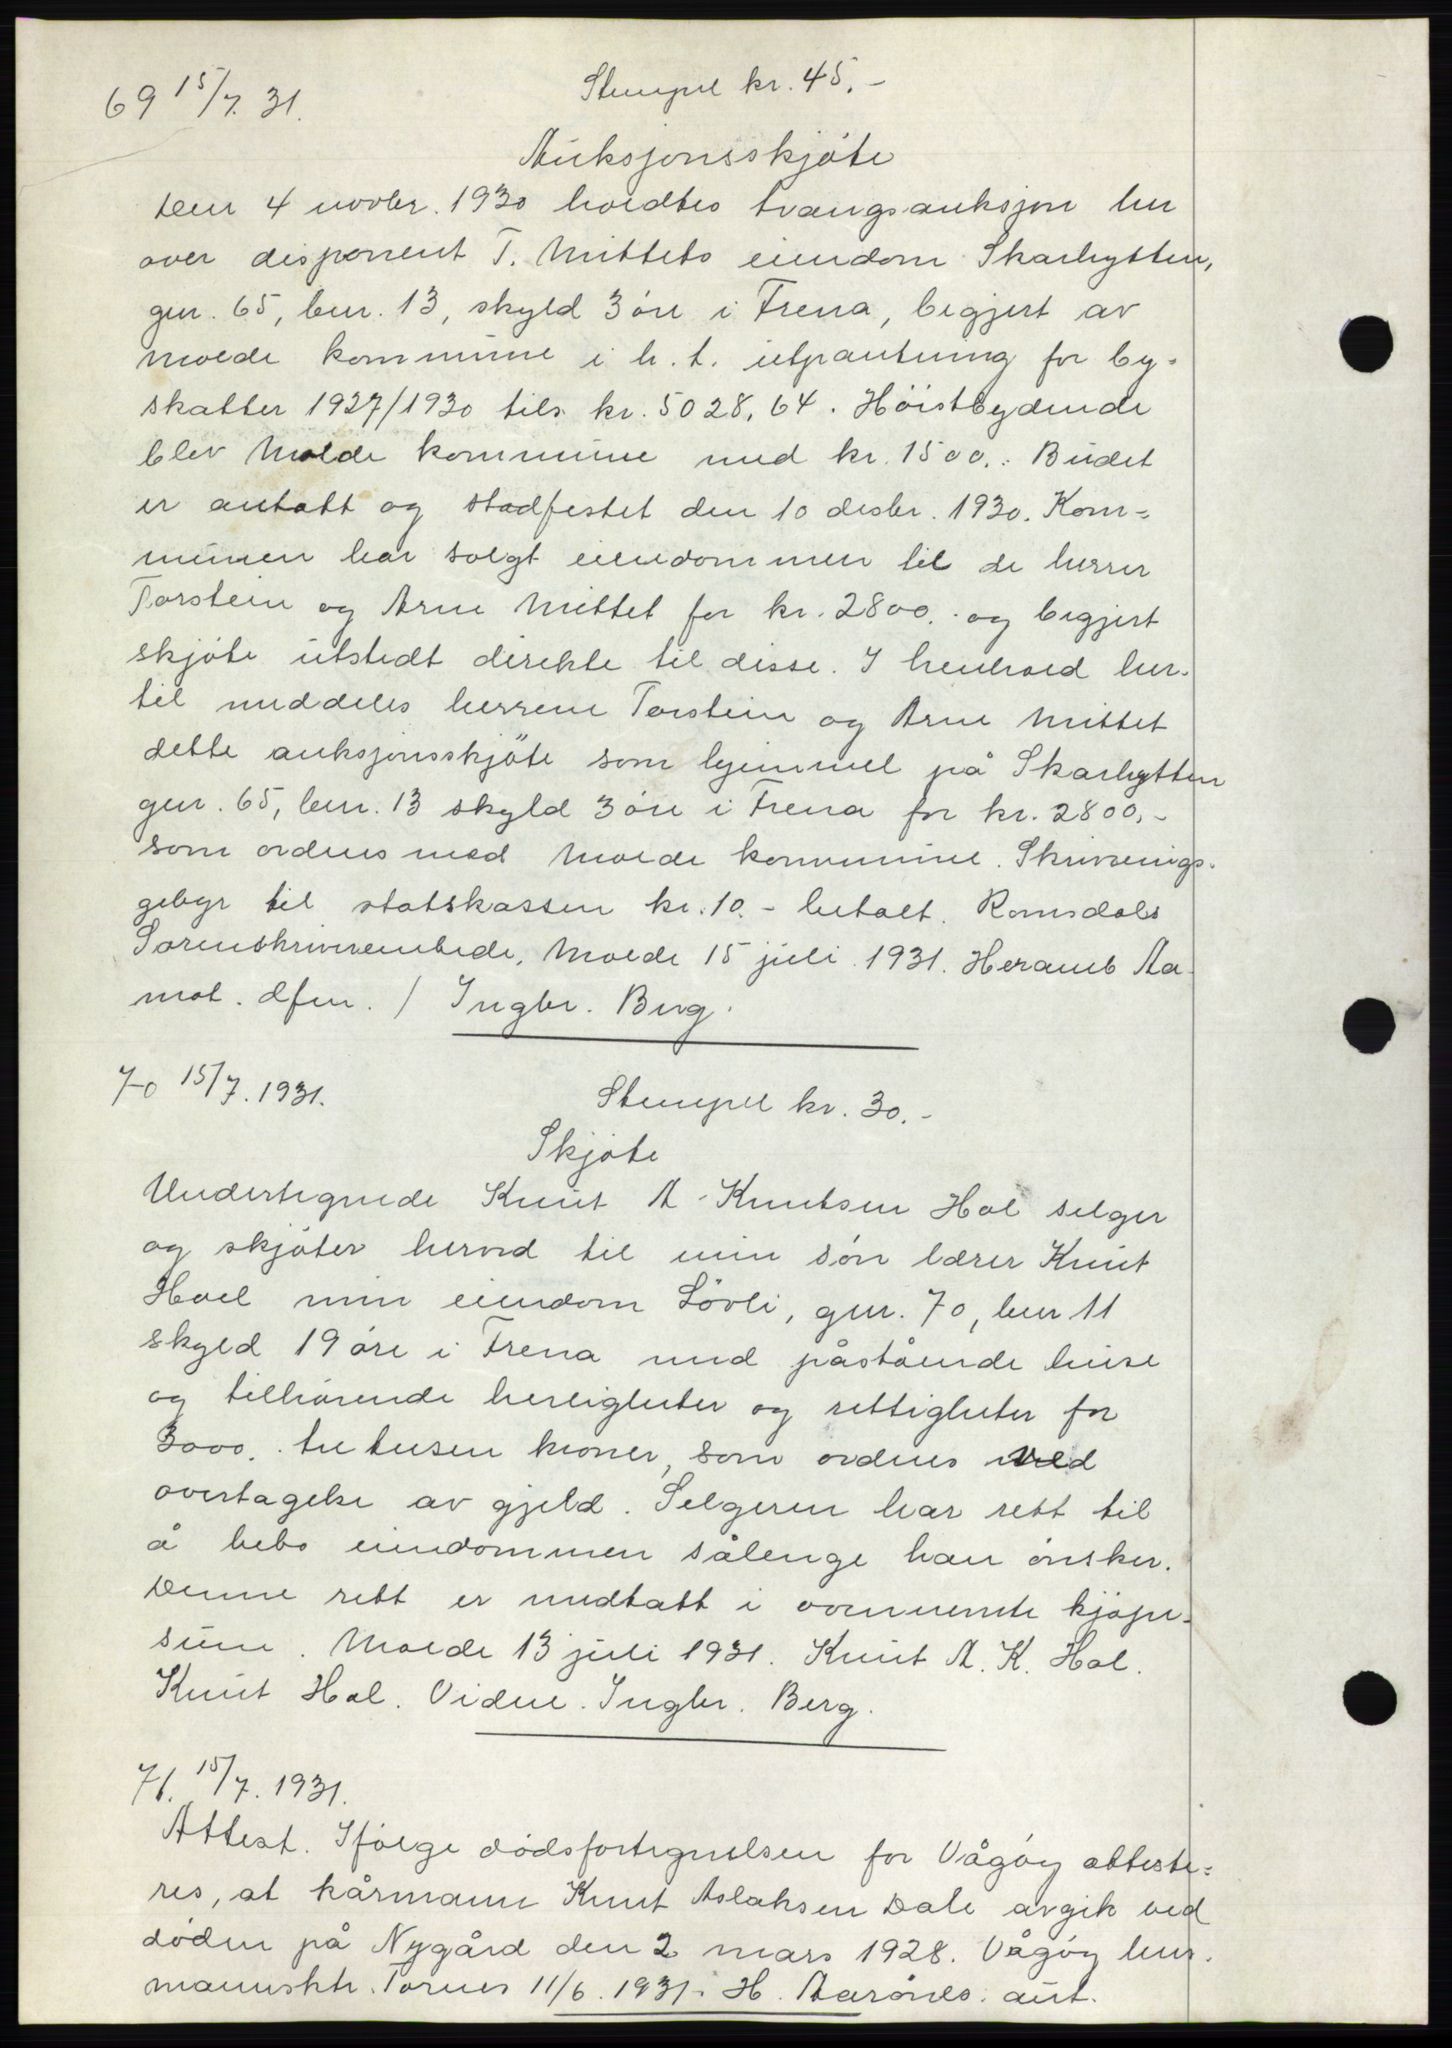 69 15/7. 31.
Stempel kr. 45.-
Auksjonsskjøte
Den 4 novbr. 1930 holdtes tvangsauksjon her
over disponent T. Mittets eiendom Skarhytten,
gnr. 65, bnr. 13, skyld 3 öre i Frena, begjert av
Molde kommune i h. t. utpantning for by-
skatter 1927/1930 tils. kr. 5028,64. Höistbydende
blev Molde kommune med kr. 1500.- Budet
er antatt og stadfestet den 10 desbr. 1930. Kom-
munen har solgt eiendommen til de herrer
Torstein og Arne Mittet for kr. 2800.- og begjert
skjöte utstedt direkte til disse. I henhold her-
til meddeles herrene Torstein og Arne Mittet
dette auksjonsskjöte som hjemmel på Skarhytten
gnr. 65, bnr. 13 skyld 3 öre i Frena for kr. 2800.-
som ordnes med Molde kommune. Skrivnings-
gebyr til statskassen kr. 10.- betalt. Romsdals
Sorenskriverembede, Molde 15 juli 1931. Heramb Aa-
mot. dfm. / Ingbr. Berg.
70 15/7. 1931.
Stempel kr. 30.-
Skjøte
Undertegnede Knut A Knutsen Hol selger
og skjöter herved til min sön lærer Knut
Hoel min eiendom Lövli, gnr. 70, bnr 11
skyld 19 öre i Frena med påstående huse
og tilhörende herligheter og rettigheter for
3000.- tre tusen kroner, som ordnes ved
overtagelse av gjeld. Selgeren har rett til
å bebo eiendommen sålenge han önsker.
Denne rett er medtatt i ovennevnte kjöpe-
sum. Molde 13 juli 1931. Knut A. K. Hol.
Knut Hol. Vidne. Ingbr. Berg.
71. 15/7. 1931.
Attest. Ifölge dödsfortegnelsen for Vågöy atteste-
res, at kårmann Knut Aslaksen Dale avgik ved
döden på Nygård den 2 mars 1928. Vågöy lens-
mannsktr. Tornes 11/6. 1931. H. Aarönes. aut.